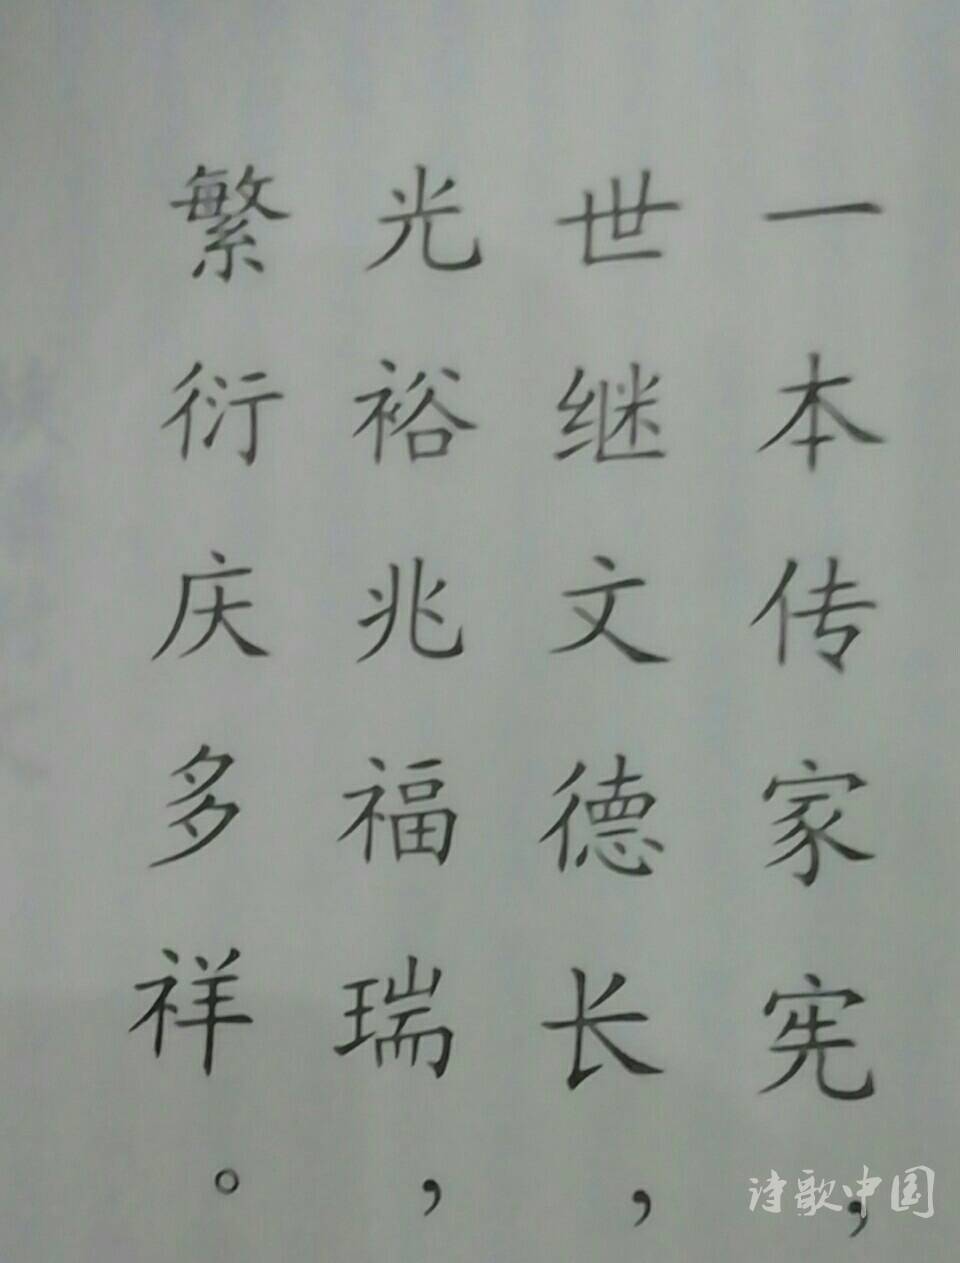 一本传家宪，
世继文德长，
光裕兆福瑞，
繁衍庆多祥。
诗歌中国